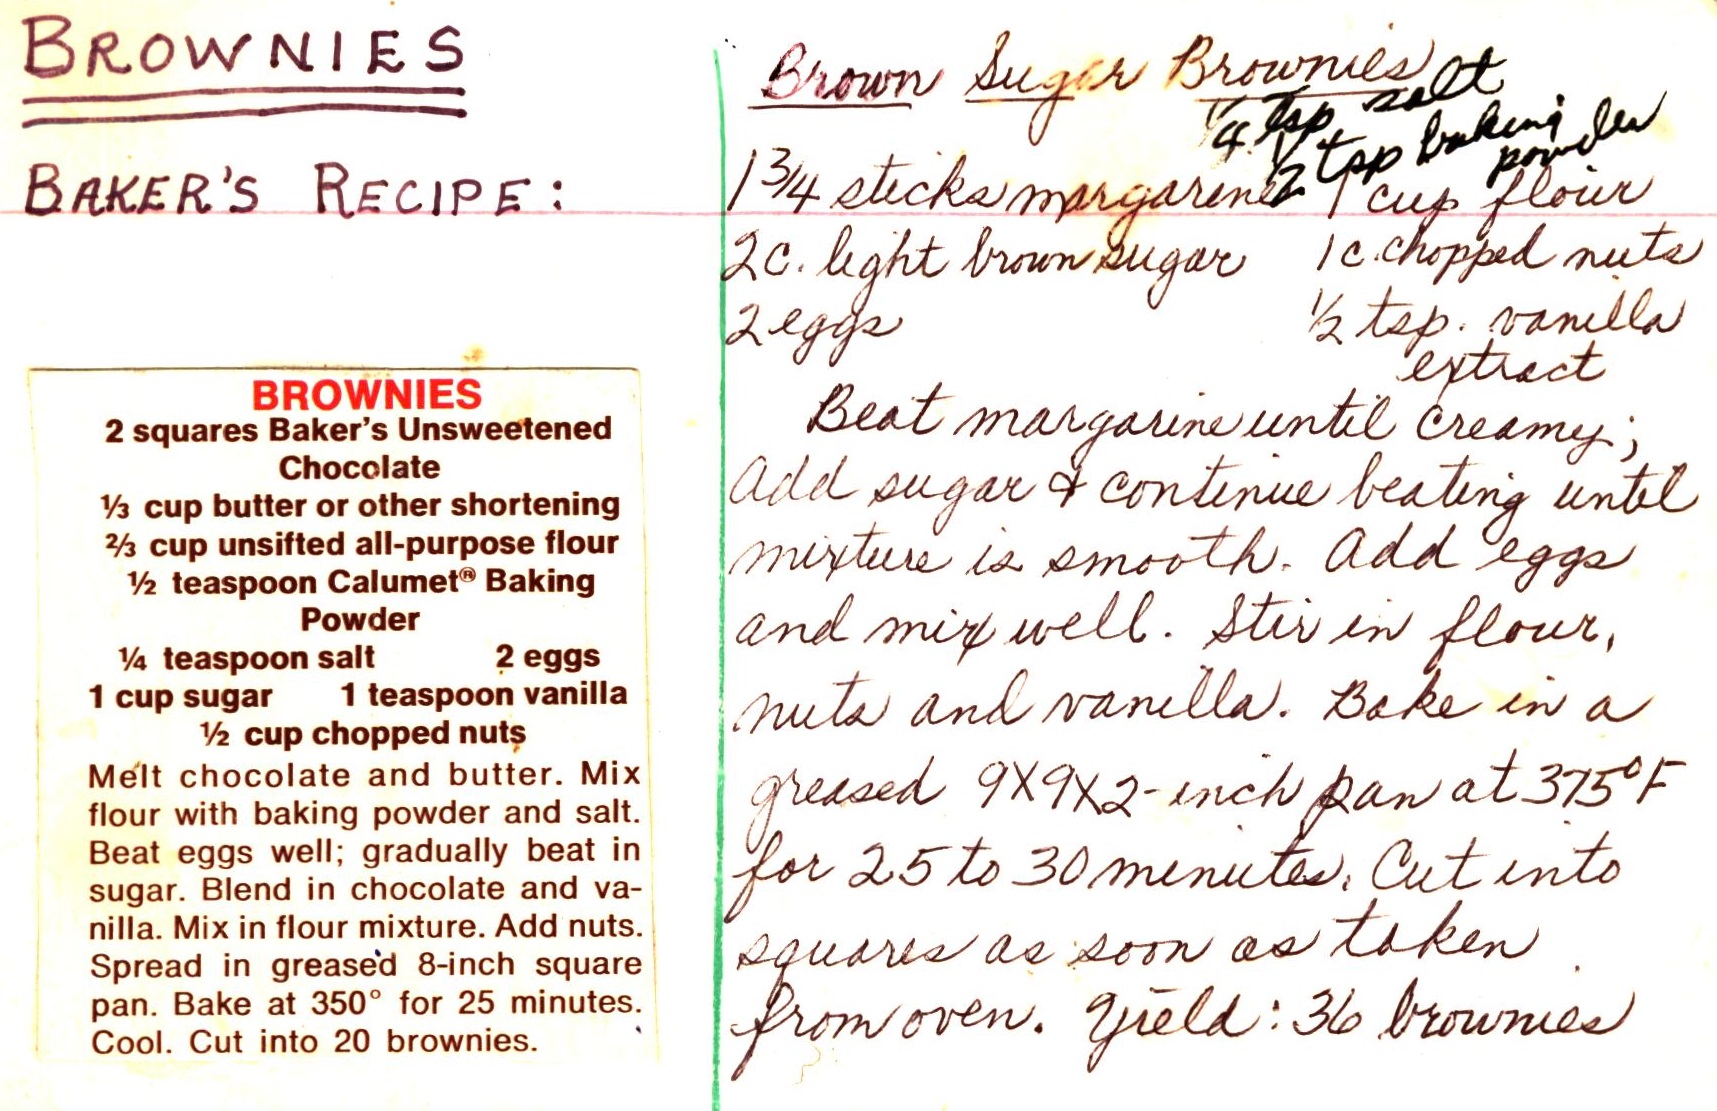 BROWNIES
BAKER'S RECIPE:
BROWNIES
2 squares Baker's Unsweetened
Chocolate
⅓ cup butter or other shortening
⅔ cup unsifted all-purpose flour
½ teaspoon Calumet® Baking
Powder
¼ teaspoon salt 2 eggs
1 cup sugar 1 teaspoon vanilla
½ cup chopped nuts
Melt chocolate and butter. Mix
flour with baking powder and salt.
Beat eggs well; gradually beat in
sugar. Blend in chocolate and va-
nilla. Mix in flour mixture. Add nuts.
Spread in greased 8-inch square
pan. Bake at 350° for 25 minutes.
Cool. Cut into 20 brownies.
Brown Sugar Brownies
¼ tsp salt
½ tsp baking
powder
1 3/4 sticks margarine 1 cup flour
2 c. light brown sugar 1 c. chopped nuts
2 eggs ½ tsp. vanilla
extract
Beat margarine until creamy;
Add sugar & continue beating until
mixture is smooth. Add eggs
and mix well. Stir in flour,
nuts and vanilla. Bake in a
greased 9X9X2-inch pan at 375°F
for 25 to 30 minutes. Cut into
squares as soon as taken
from oven. Yield: 36 brownies